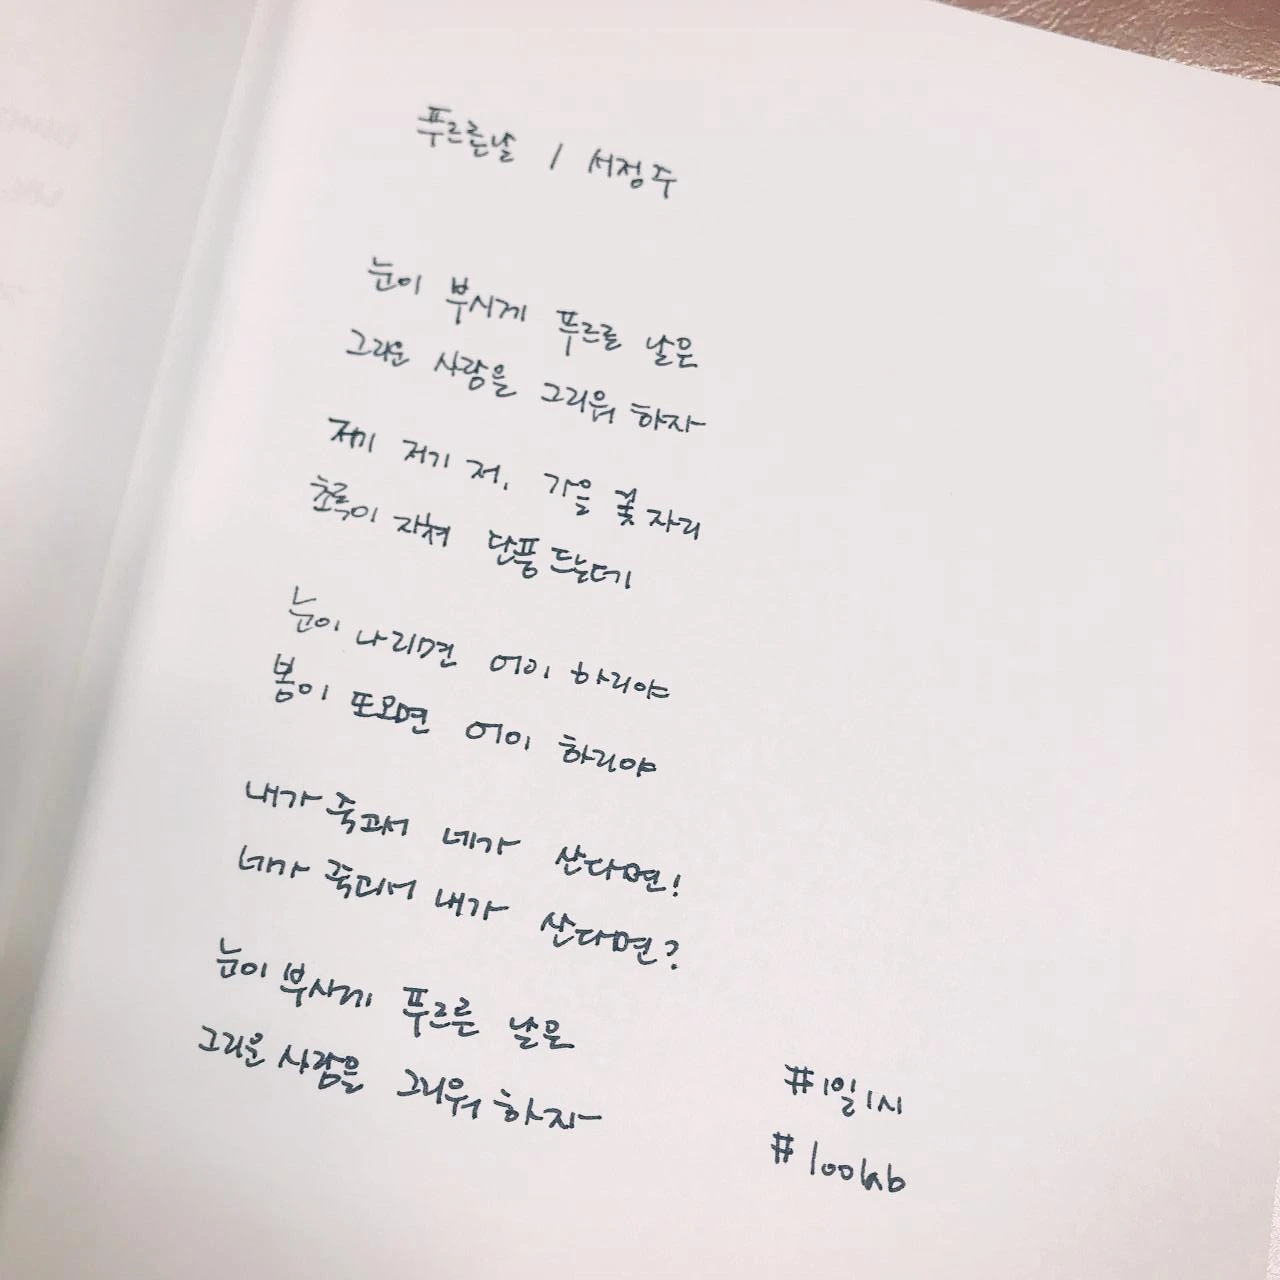 푸르른날 / 서정주
눈이 부시게 푸르른 날은
그리운 사람을 그리워 하자
저기 저기 저, 가을 꽃 자리
초록이 지쳐 단풍 드는데
눈이 나리면 어이 하리야
봄이 또오면 어이 하리야
내가 죽고서 네가 산다면!
네가 죽고서 내가 산다면?
눈이 부시게 푸르른 날은
그리운 사람을 그리워 하자
#1일1시
#100lab